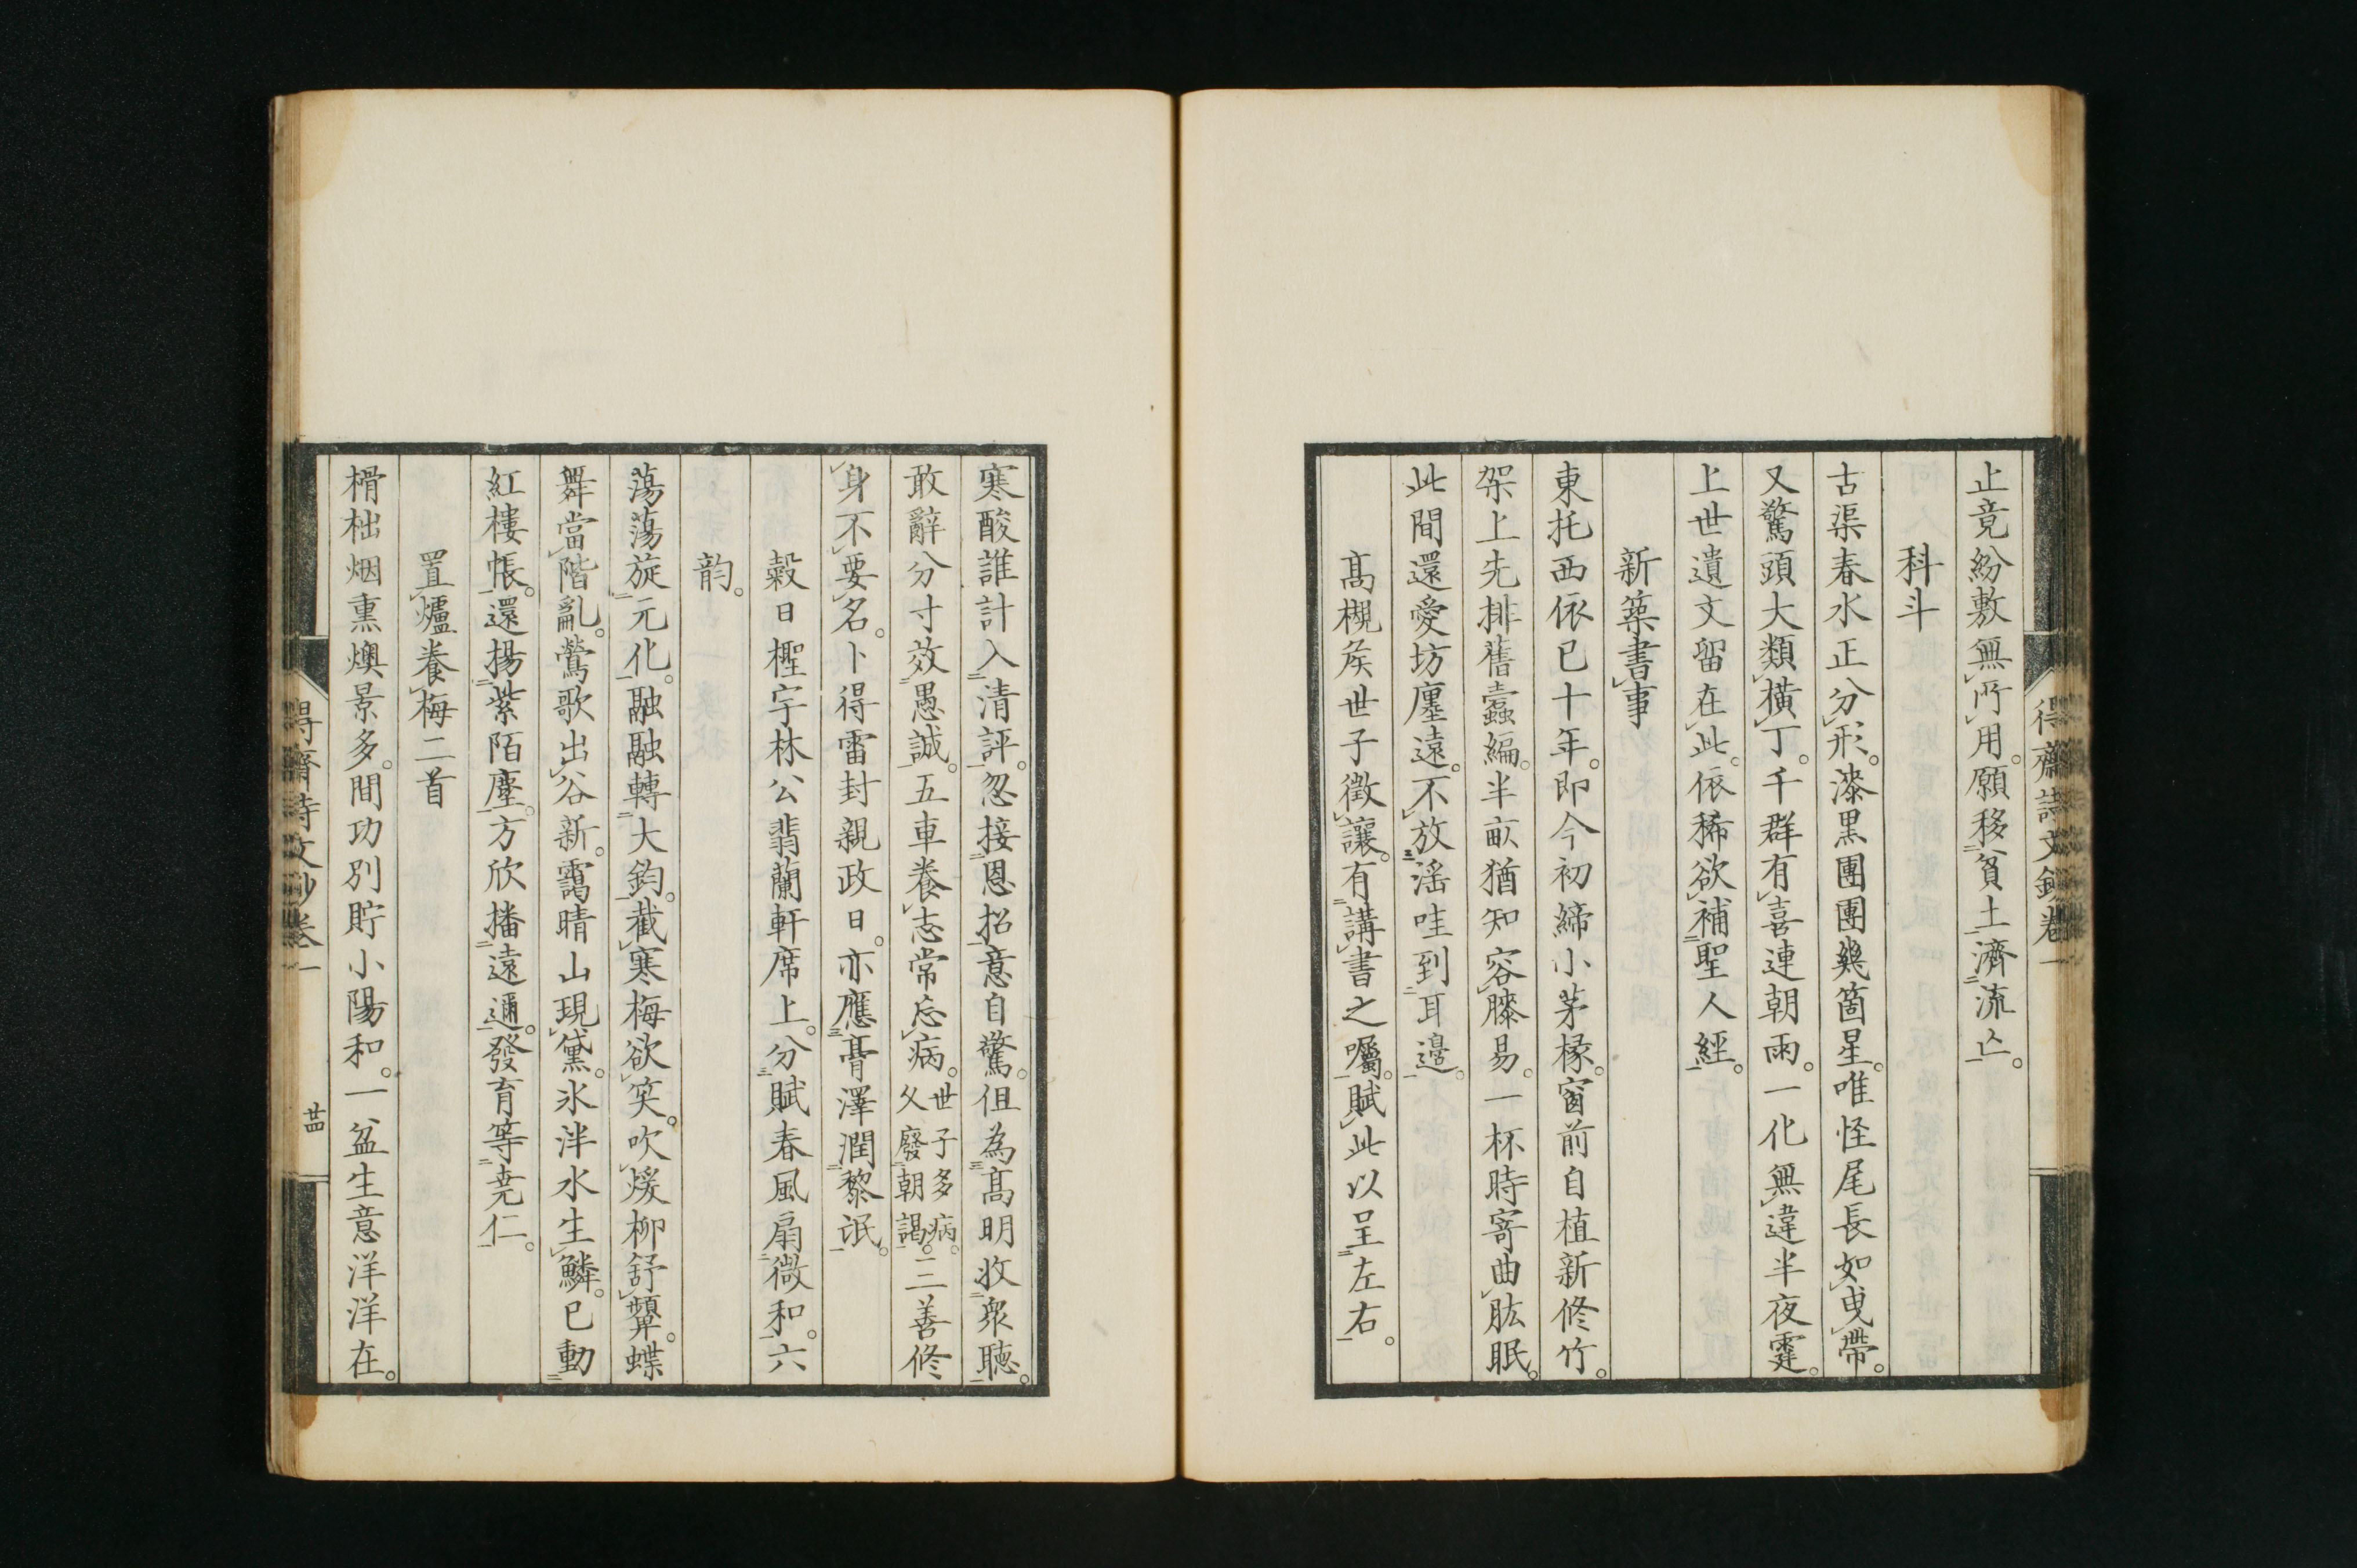 得齋詩文鈔卷一
止竟紛敷無所用。願移貧土濟流亡。
科斗
古渠春水正分形。漆黑團團幾箇星。唯怪尾長如曳帶。
又驚頭大類橫丁。千群有喜連朝雨。一化無違半夜霆。
上世遺文留在此。依稀欲補聖人經。
新築書事
東托西依已十年。即今初締小茅椽。窗前自植新修竹。
架上先排舊蠹編。半畝猶知容膝易。一杯時寄曲肱眠。
此間還愛坊廛遠。不放淫哇到耳邊。
高槻矦世子徵讓。有講書之囑。賦此以呈左右。
寒酸誰計入清評。忽接恩招意自驚。但為高明收衆聽。
敢辭分寸效愚誠。五車養志常忘病。世子多病。久廢朝謁。三善修
身不要名。卜得雷封親政日。亦應膏澤潤黎氓。
穀日檉宇林公翡蘭軒席上。分賦春風扇微和。六
韵。
蕩蕩旋元化。融融轉大鈞。截寒梅欲笑。吹煖柳舒顰。蝶
舞當階亂。鶯歌出谷新。靄晴山現黛。氷泮水生鱗。已動
紅樓帳。還揚紫陌塵。方欣播遠邇。發育等堯仁。
置爐養梅二首
榾柮烟熏燠景多。間功別貯小陽和。一盆生意洋洋在。
得齋詩文鈔卷一
廿四